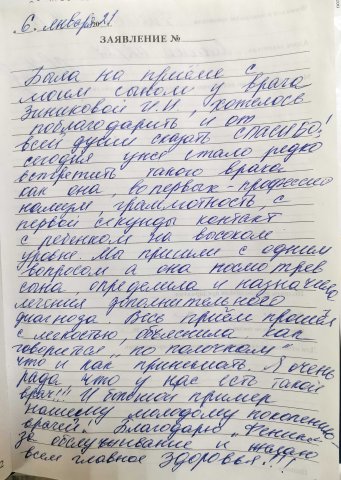 6. января 21
ЗАЯВЛЕНИЕ №
Была на приёме с
моим сыном у врача
Зиниковой И.И, хотелось
поблагодарить и от
всей души сказать СПАСИБО!
сегодня уже стало редко
встретить такого врача
как она, во первых - професcио
нализм, грамотность, с
первой секунды контакт
с ребёнком на высоком
уровне. Мы пришли с одним
вопросом а она посмотрев
сына определила и назначила
лечения дополнительного
диагноза. Весь приём прошёл
с легкостью, объяснила как
говорится "по полочкам"
что и как принимать. Я очень
рада что у нас есть такой
врач!!! И большой пример
нашему молодому поколению
врачей! Благодарю "Феникс"
за обслуживание и желаю
всем главное Здоровья!!!